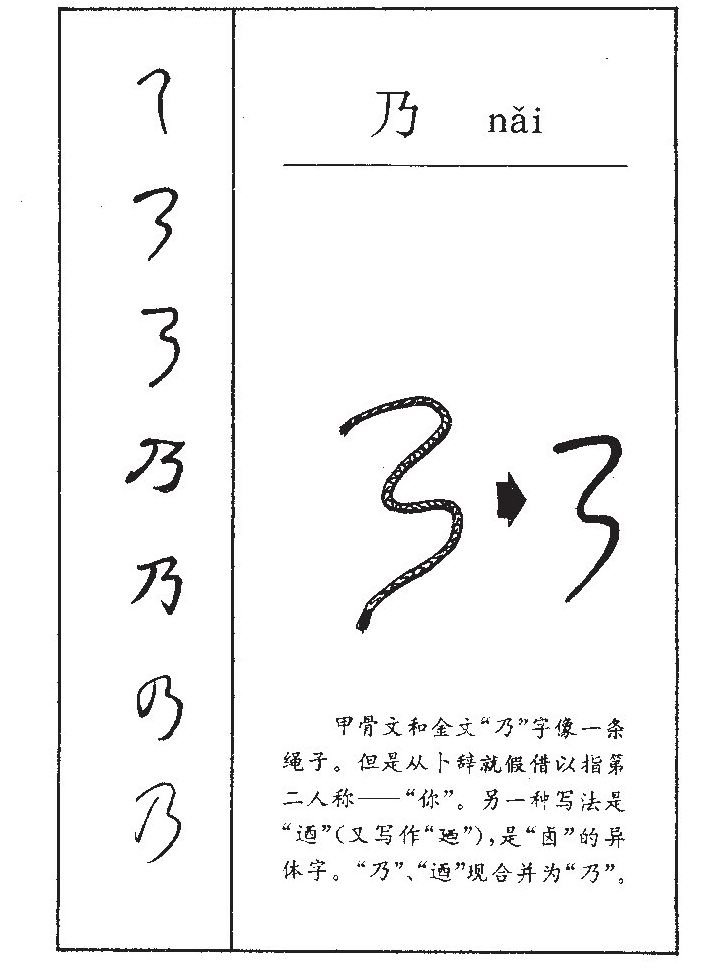 乃 nǎi
甲骨文和金文“乃”字像一条
绳子。但是从卜辞就假借以指第
二人称——“你”。另一种写法是
“迺”(又写作“廼”),是“卤”的异
体字。“乃”、“迺”现合并为“乃”。